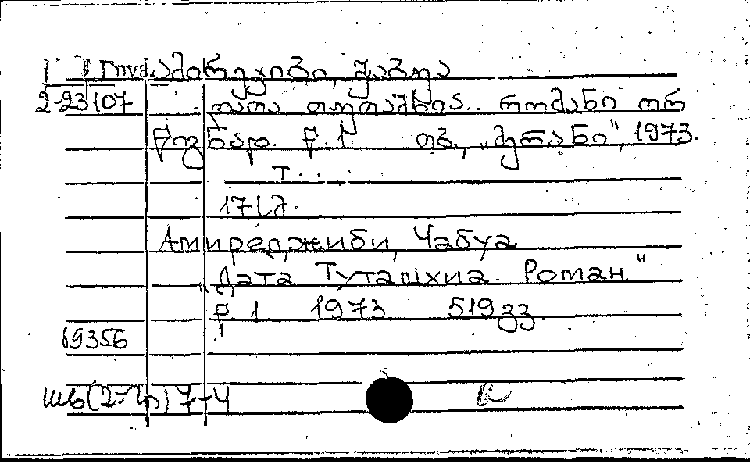 ამირეჯიბი, ჭაბუა
2-23107 დათა თუთაშხია. რომანი ორ
წიგნად. წ. 1 თბ., „მერანი", 1973.
Амиреджиби, Чабуа
Дата Туташхиа. Роман."
წ 1 1973 519გვ.
69356